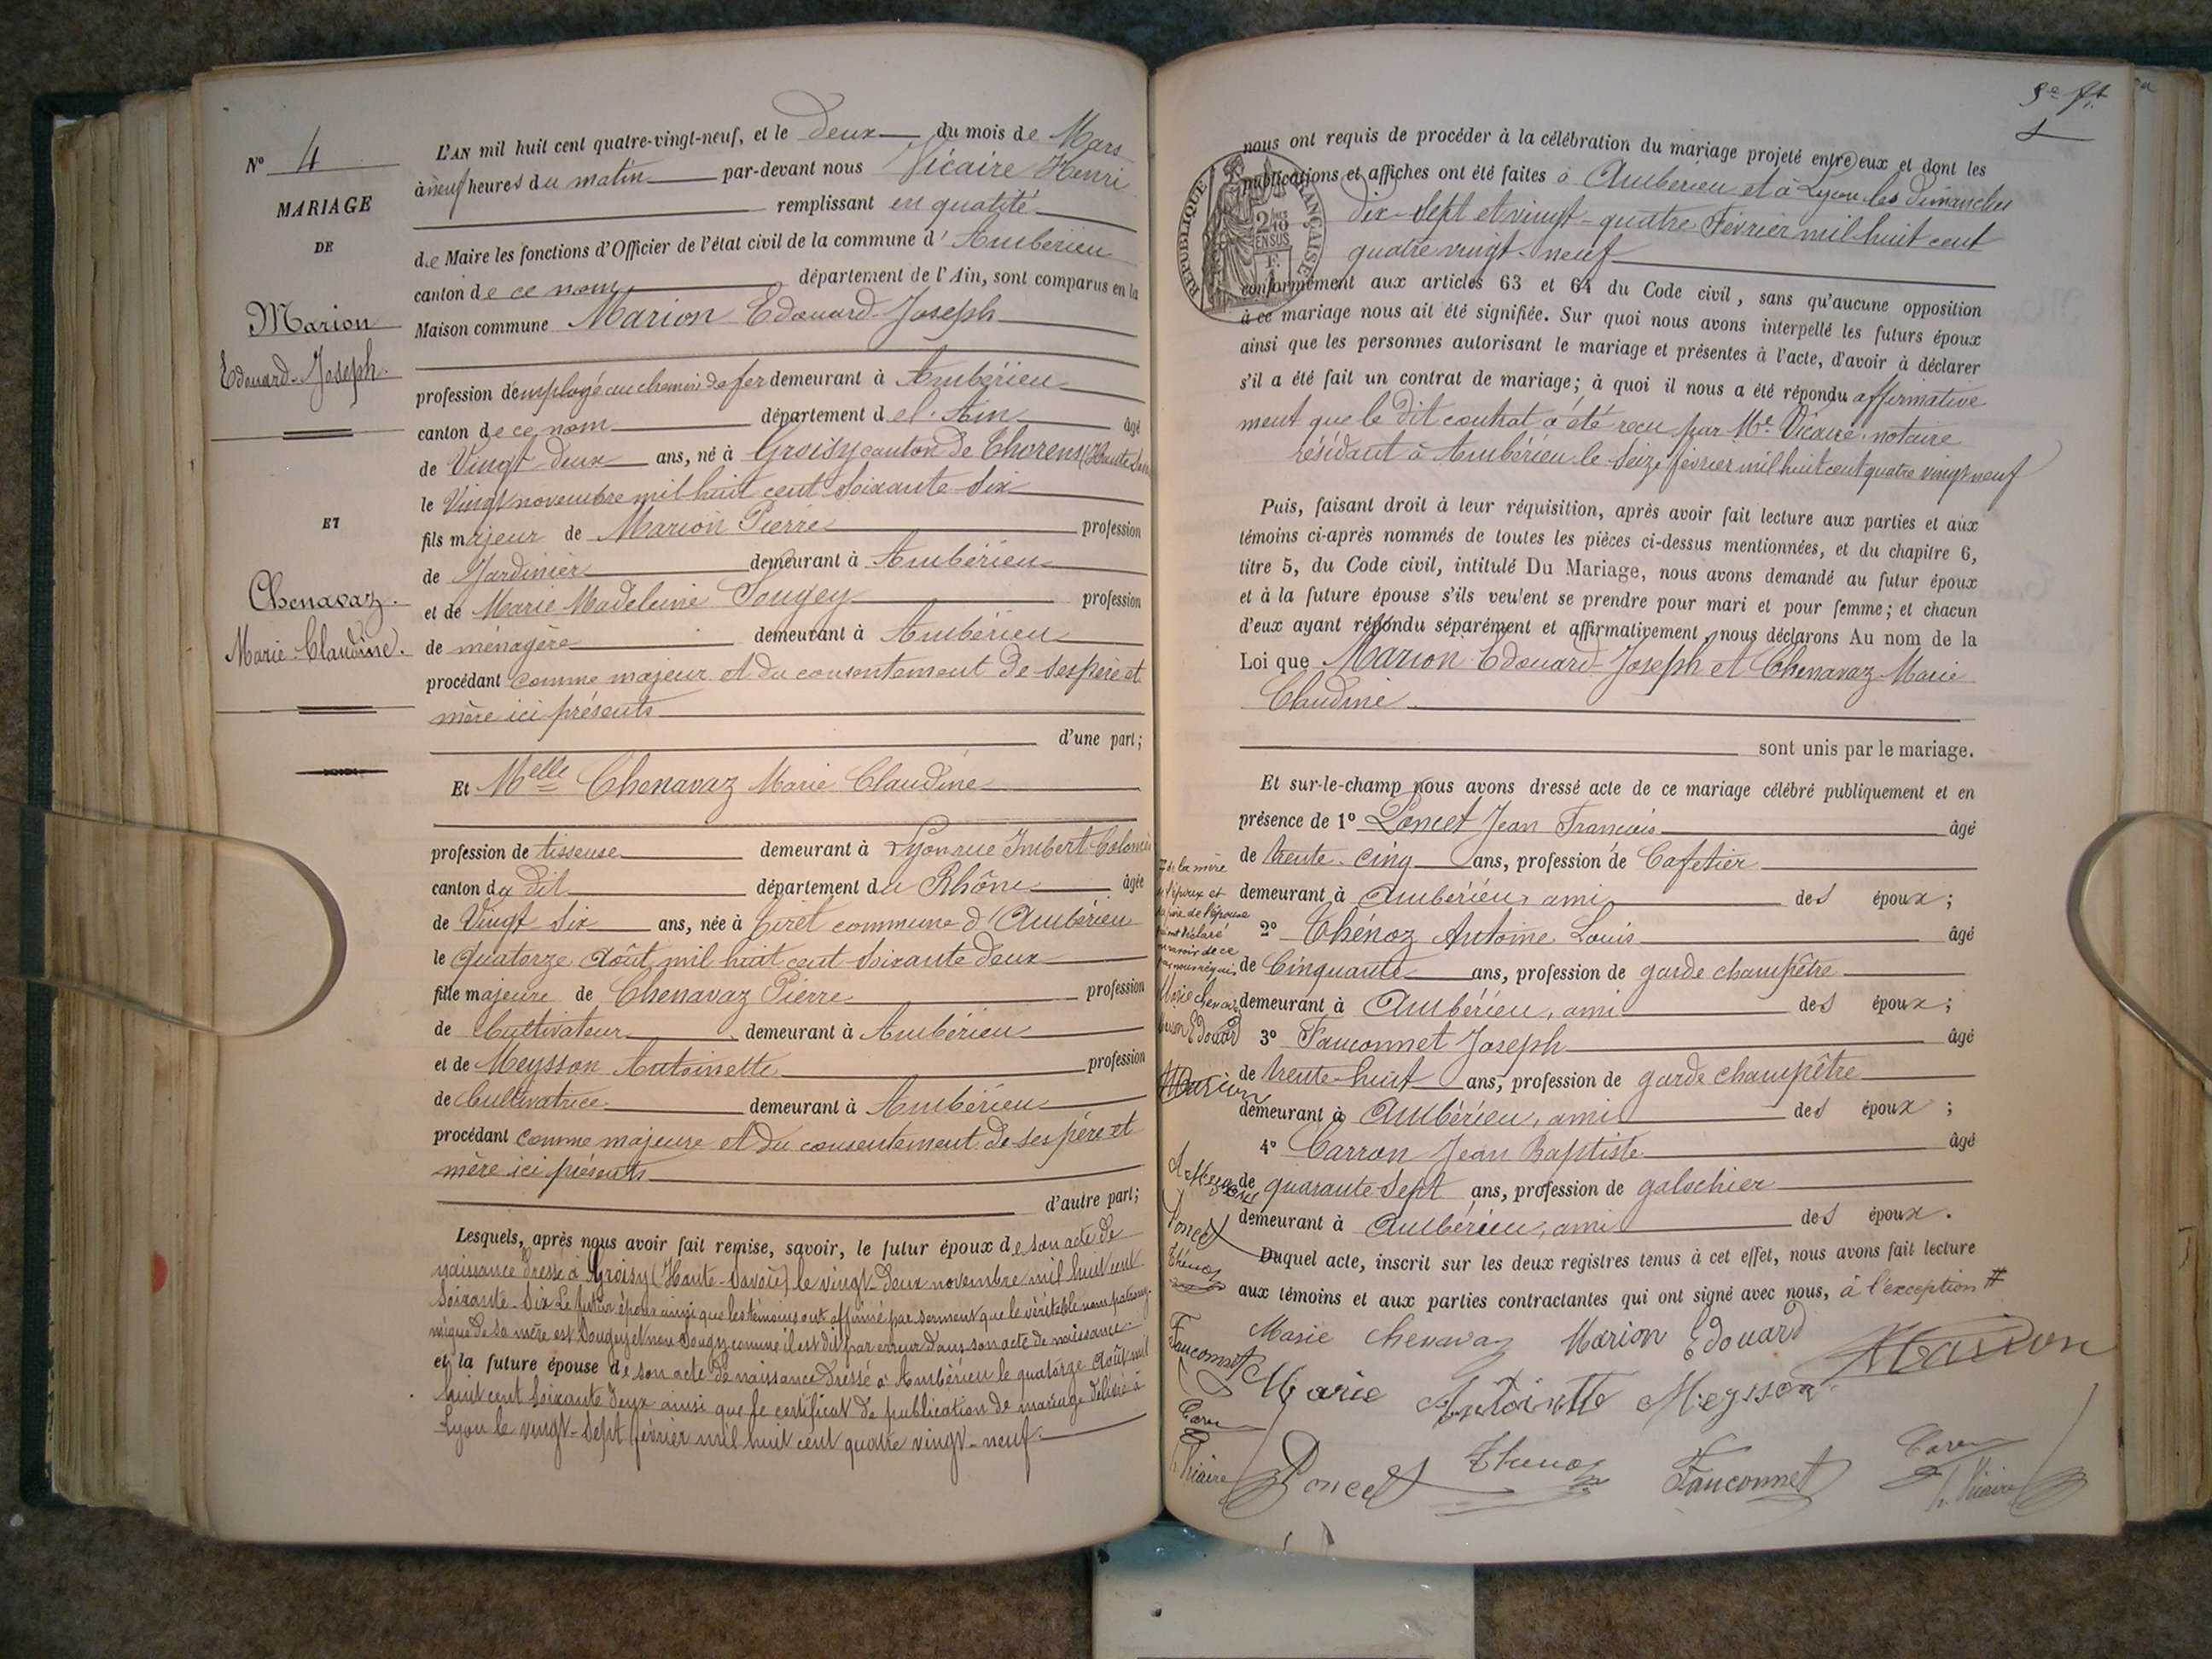 N° 4
MARIAGE
DE
Marion
Edouard-Joseph.
ET
Chenavaz.
Marie-Claudine.
L'AN mil huit cent quatre-vingt-neuf, et le deux du mois de Mars
à neuf heures du matin par-devant nous Vicaire Henri
remplissant en qualité
de Maire les fonctions d'Officier de l'état civil de la commune d'Ambérieu
canton de ce nom département de l'Ain, sont comparus en la
Maison commune Marion Edouard-Joseph
profession d'employé au chemin de fer demeurant à Ambérieu
canton de ce nom département de l'Ain âgé
de Vingt deux ans, né à Groisy canton de Thorens (Haute Savoie
le Vingt novembre mil huit cent soixante six
fils majeur de Marion Pierre profession
de Jardinier demeurant à Ambérieu
et de Marie Madeleine Sougey profession
de ménagère demeurant à Ambérieu
procédant comme majeur et du consentement de ses père et
mère ici présents
d'une part;
Et Melle Chenavaz Marie Claudine
profession de tisseuse demeurant à Lyon rue Imbert Colomès
canton du dit département du Rhône âgée
de Vingt six ans, née à Tiret commune d'Ambérieu
le quatorze Août mil huit cent soixante deux
fille majeure de Chenavaz Pierre profession
de Cultivateur demeurant à Ambérieu
et de Meysson Antoinette profession
de Cultivatrice demeurant à Ambérieu
procédant comme majeure et du consentement de ses père et
mère ici présents
d'autre part;
Lesquels, après nous avoir fait remise, savoir, le futur époux de son acte de
naissance dressé à Groisy (Haute-Savoie) le vingt-deux novembre mil huit cent
soixante-six Le futur époux ainsi que les témoins ont affirmé par serment que le véritable nom patrony-
mique de sa mère est Sougey et non Sougy comme il est dit par erreur dans son acte de naissance.
et la future épouse de son acte de naissance dressé à Ambérieu le quatorze Août mil
huit cent soixante deux ainsi que le certificat de publication de mariage délivré à
Lyon le vingt-sept février mil huit cent quatre vingt-neuf.
RÉPUBLIQUE FRANÇAISE
nous ont requis de procéder à la célébration du mariage projeté entre eux et dont les
publications et affiches ont été faites à Ambérieu et à Lyon les dimanches
dix-sept et vingt-quatre Février mil huit cent
quatre vingt-neuf
conformément aux articles 63 et 64 du Code civil, sans qu'aucune opposition
à ce mariage nous ait été signifiée. Sur quoi nous avons interpellé les futurs époux
ainsi que les personnes autorisant le mariage et présentes à l'acte, d'avoir à déclarer
s'il a été fait un contrat de mariage; à quoi il nous a été répondu affirmative
ment que le dit contrat a été reçu par Me Vicaire, notaire
résidant à Ambérieu le seize février mil huit cent quatre vingt neuf
Puis, faisant droit à leur réquisition, après avoir fait lecture aux parties et aux
témoins ci-après nommés de toutes les pièces ci-dessus mentionnées, et du chapitre 6,
titre 5, du Code civil, intitulé Du Mariage, nous avons demandé au futur époux
et à la future épouse s'ils veulent se prendre pour mari et pour femme; et chacun
d'eux ayant répondu séparément et affirmativement, nous déclarons Au nom de la
Loi que Marion Edouard-Joseph et Chenavaz Marie
Claudine
sont unis par le mariage.
Et sur-le-champ nous avons dressé acte de ce mariage célébré publiquement et en
présence de 1° Poncet Jean François âgé
de trente-cinq ans, profession de Cafetier
demeurant à Ambérieu, ami des époux;
2° Thénoz Antoine Louis âgé
de Cinquante ans, profession de garde champêtre
demeurant à Ambérieu, ami des époux;
3° Fauconnet Joseph âgé
de trente-huit ans, profession de garde champêtre
demeurant à Ambérieu, ami des époux;
4° Carron Jean Baptiste âgé
de quarante-sept ans, profession de galochier
demeurant à Ambérieu, ami des époux.
Duquel acte, inscrit sur les deux registres tenus à cet effet, nous avons fait lecture
aux témoins et aux parties contractantes qui ont signé avec nous, à l'exception #
# de la mère
de l'époux et
du père de l'épouse
qui ont déclaré
ne savoir de ce
par nous requis
Marie Chenavaz
Marion Edouard
Marion
A Meysson
Poncet
Thénoz
Fauconnet
Caron
Vicaire
Marie Chenavaz Marion Edouard Marion
Marie Antoinette Meysson
Poncet Thenoz Fauconnet Caron
H. Vicaire